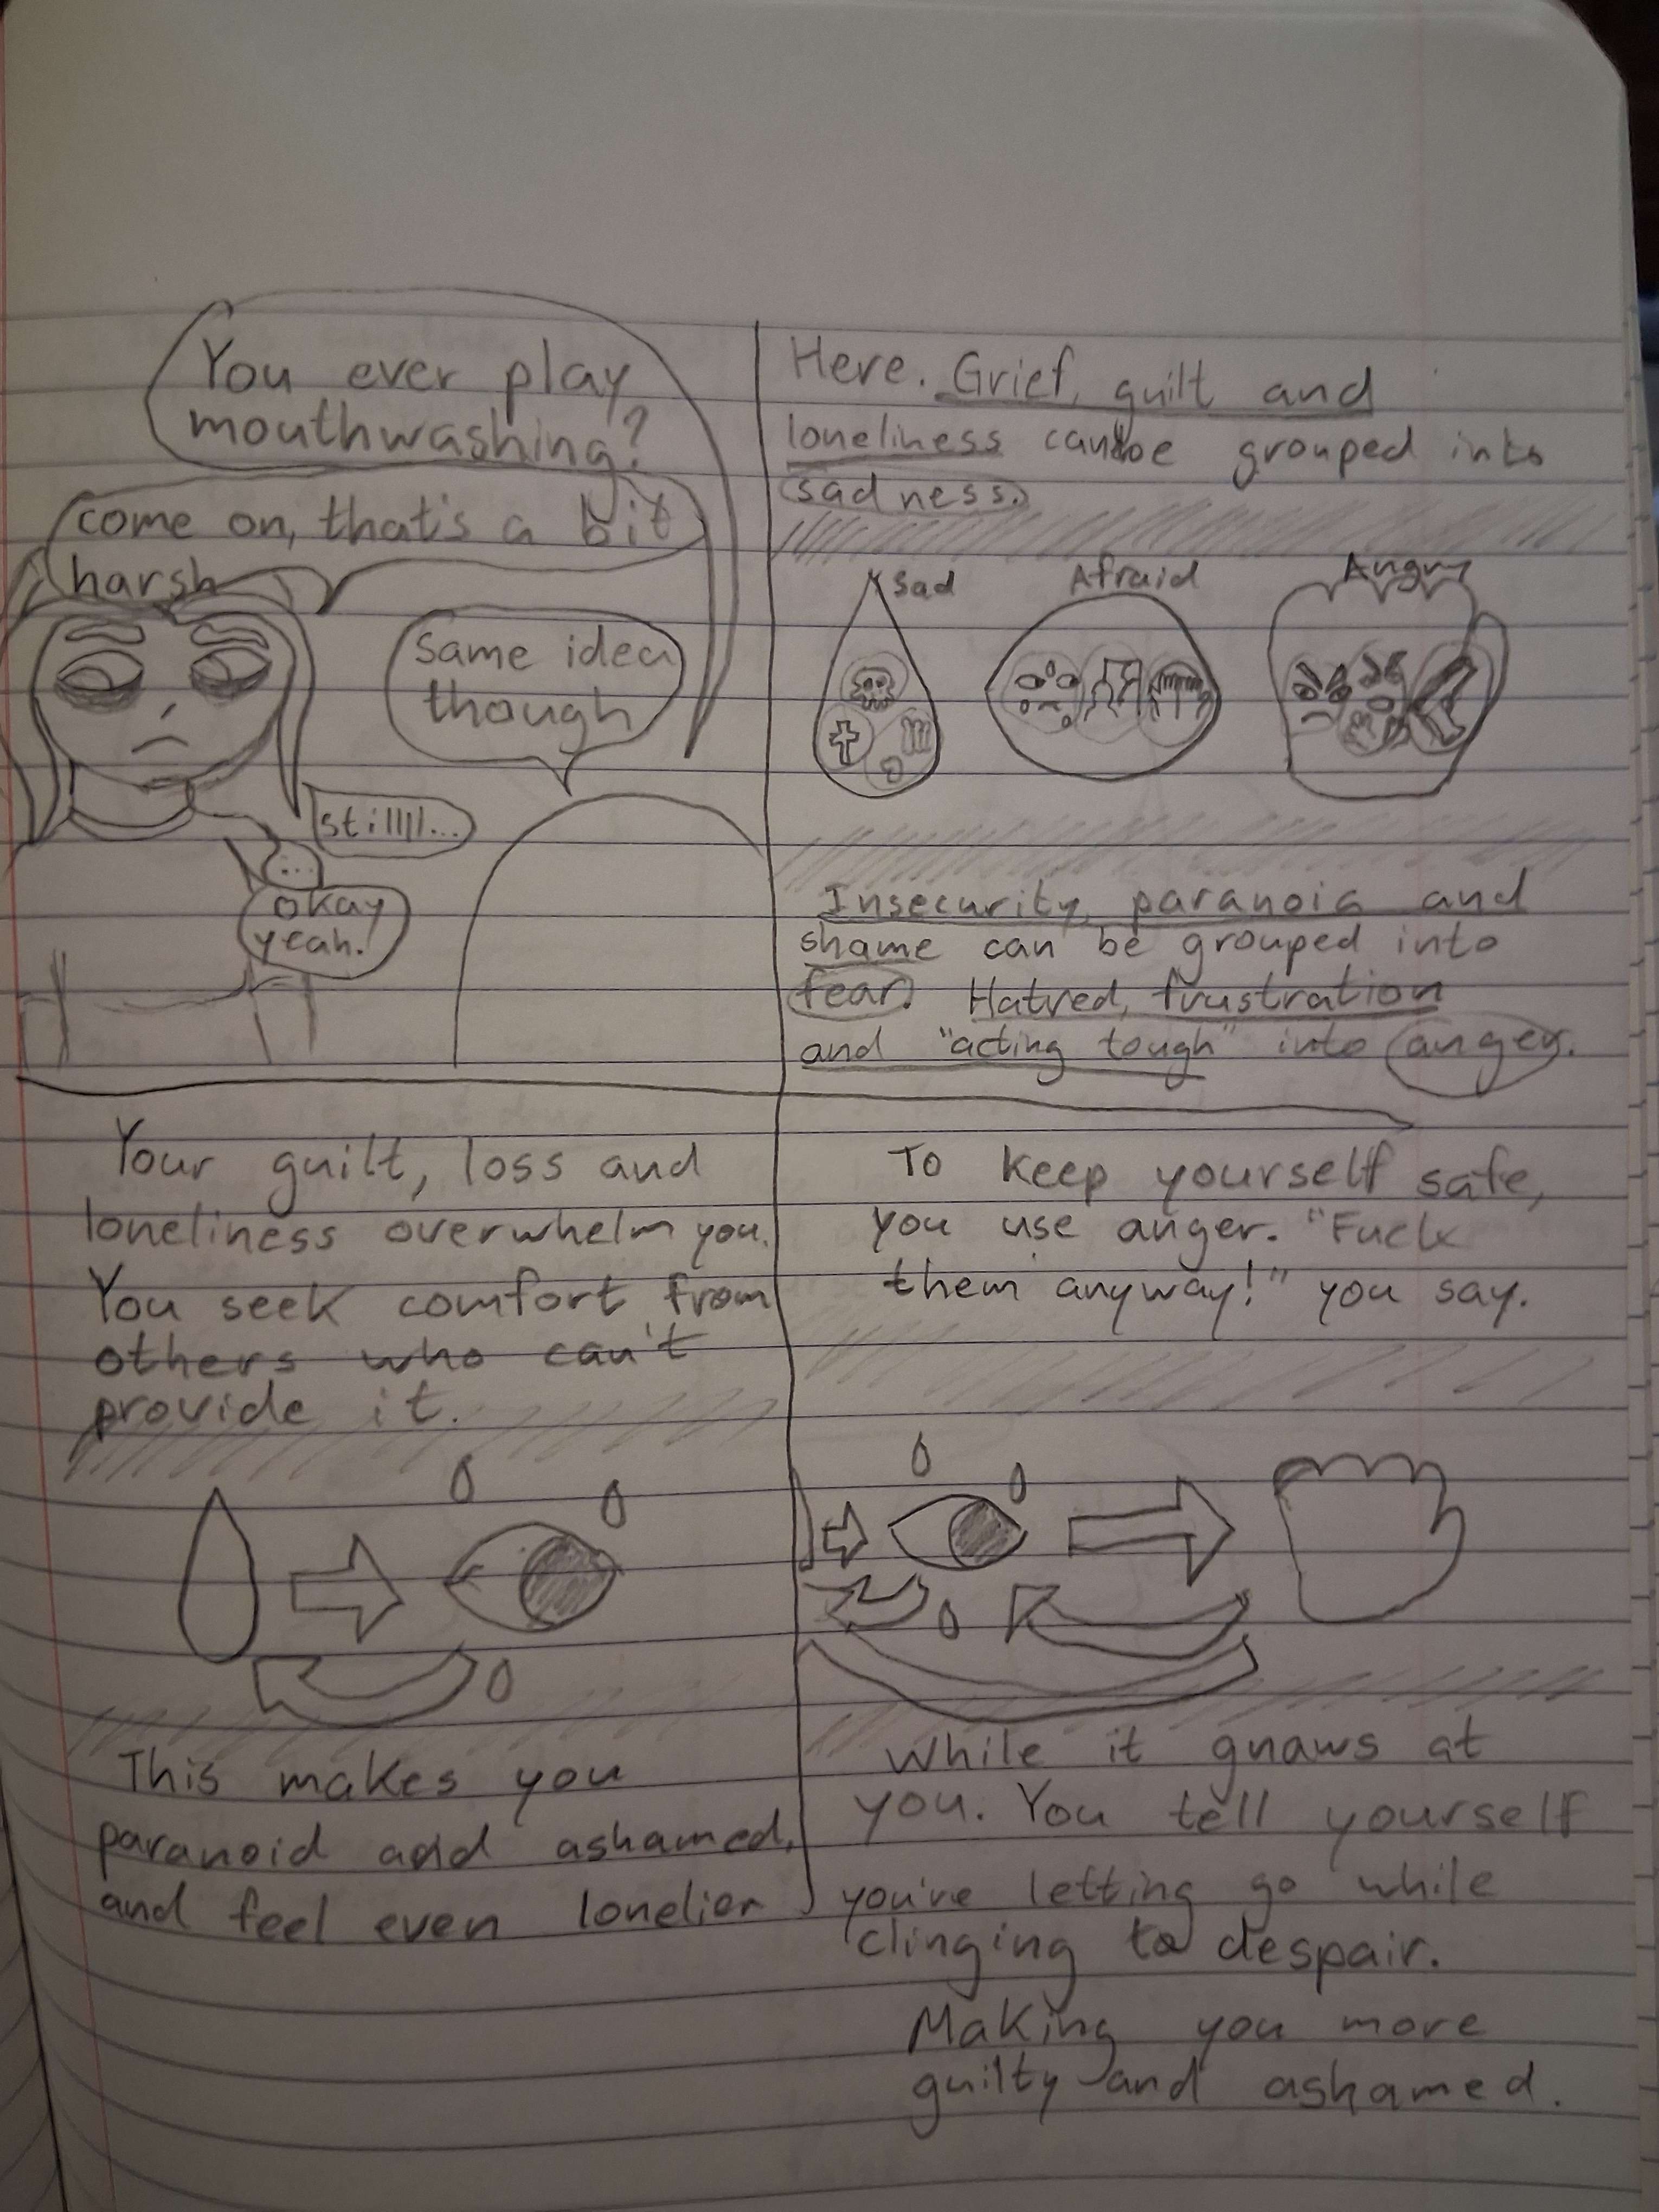 You ever play
mouthwashing?
come on, that's a bit
harsh
same idea
though
stillll...
...
okay
yeah.
Here. Grief, guilt and
loneliness can be grouped into
sadness.
Sad
Afraid
Angry
Insecurity, paranoia and
shame can be grouped into
fear. Hatred, frustration
and "acting tough" into anger.
Your guilt, loss and
loneliness overwhelm you.
You seek comfort from
others who can't
provide it.
This makes you
paranoid and ashamed,
and feel even lonelier
To keep yourself safe,
you use anger. "Fuck
them anyway!" you say.
While it gnaws at
you. You tell yourself
you're letting go while
clinging to despair.
Making you more
guilty and ashamed.